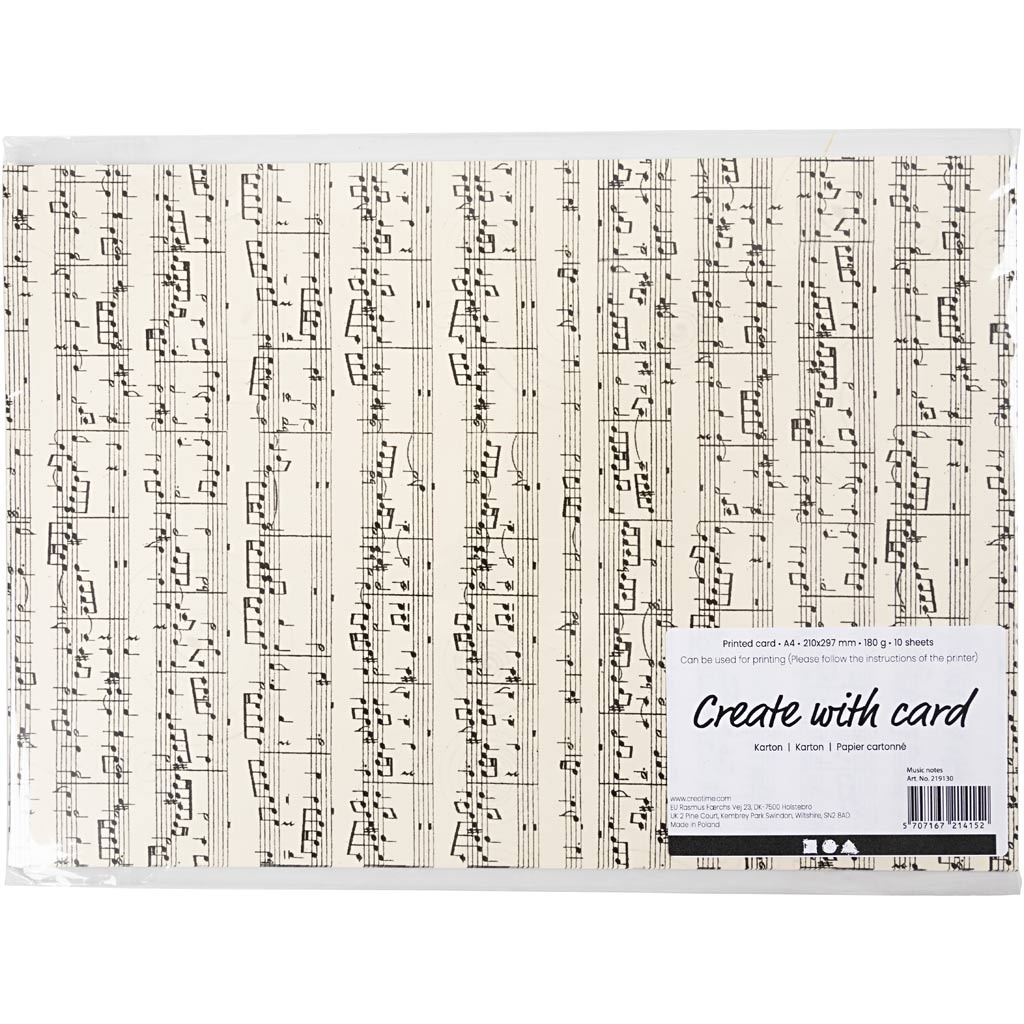 Printed card • A4 • 210x297 mm • 180 g • 10 sheets
Can be used for printing (Please follow the instructions of the printer)
Create with card
Karton | Karton | Papier cartonné
Music notes
Art. No. 219130
www.creotime.com
EU Rasmus Færchs Vej 23, DK-7500 Holstebro
UK 2 Pine Court, Kembrey Park Swindon, Wiltshire, SN2 8AD
Made in Poland
5 707167 214152